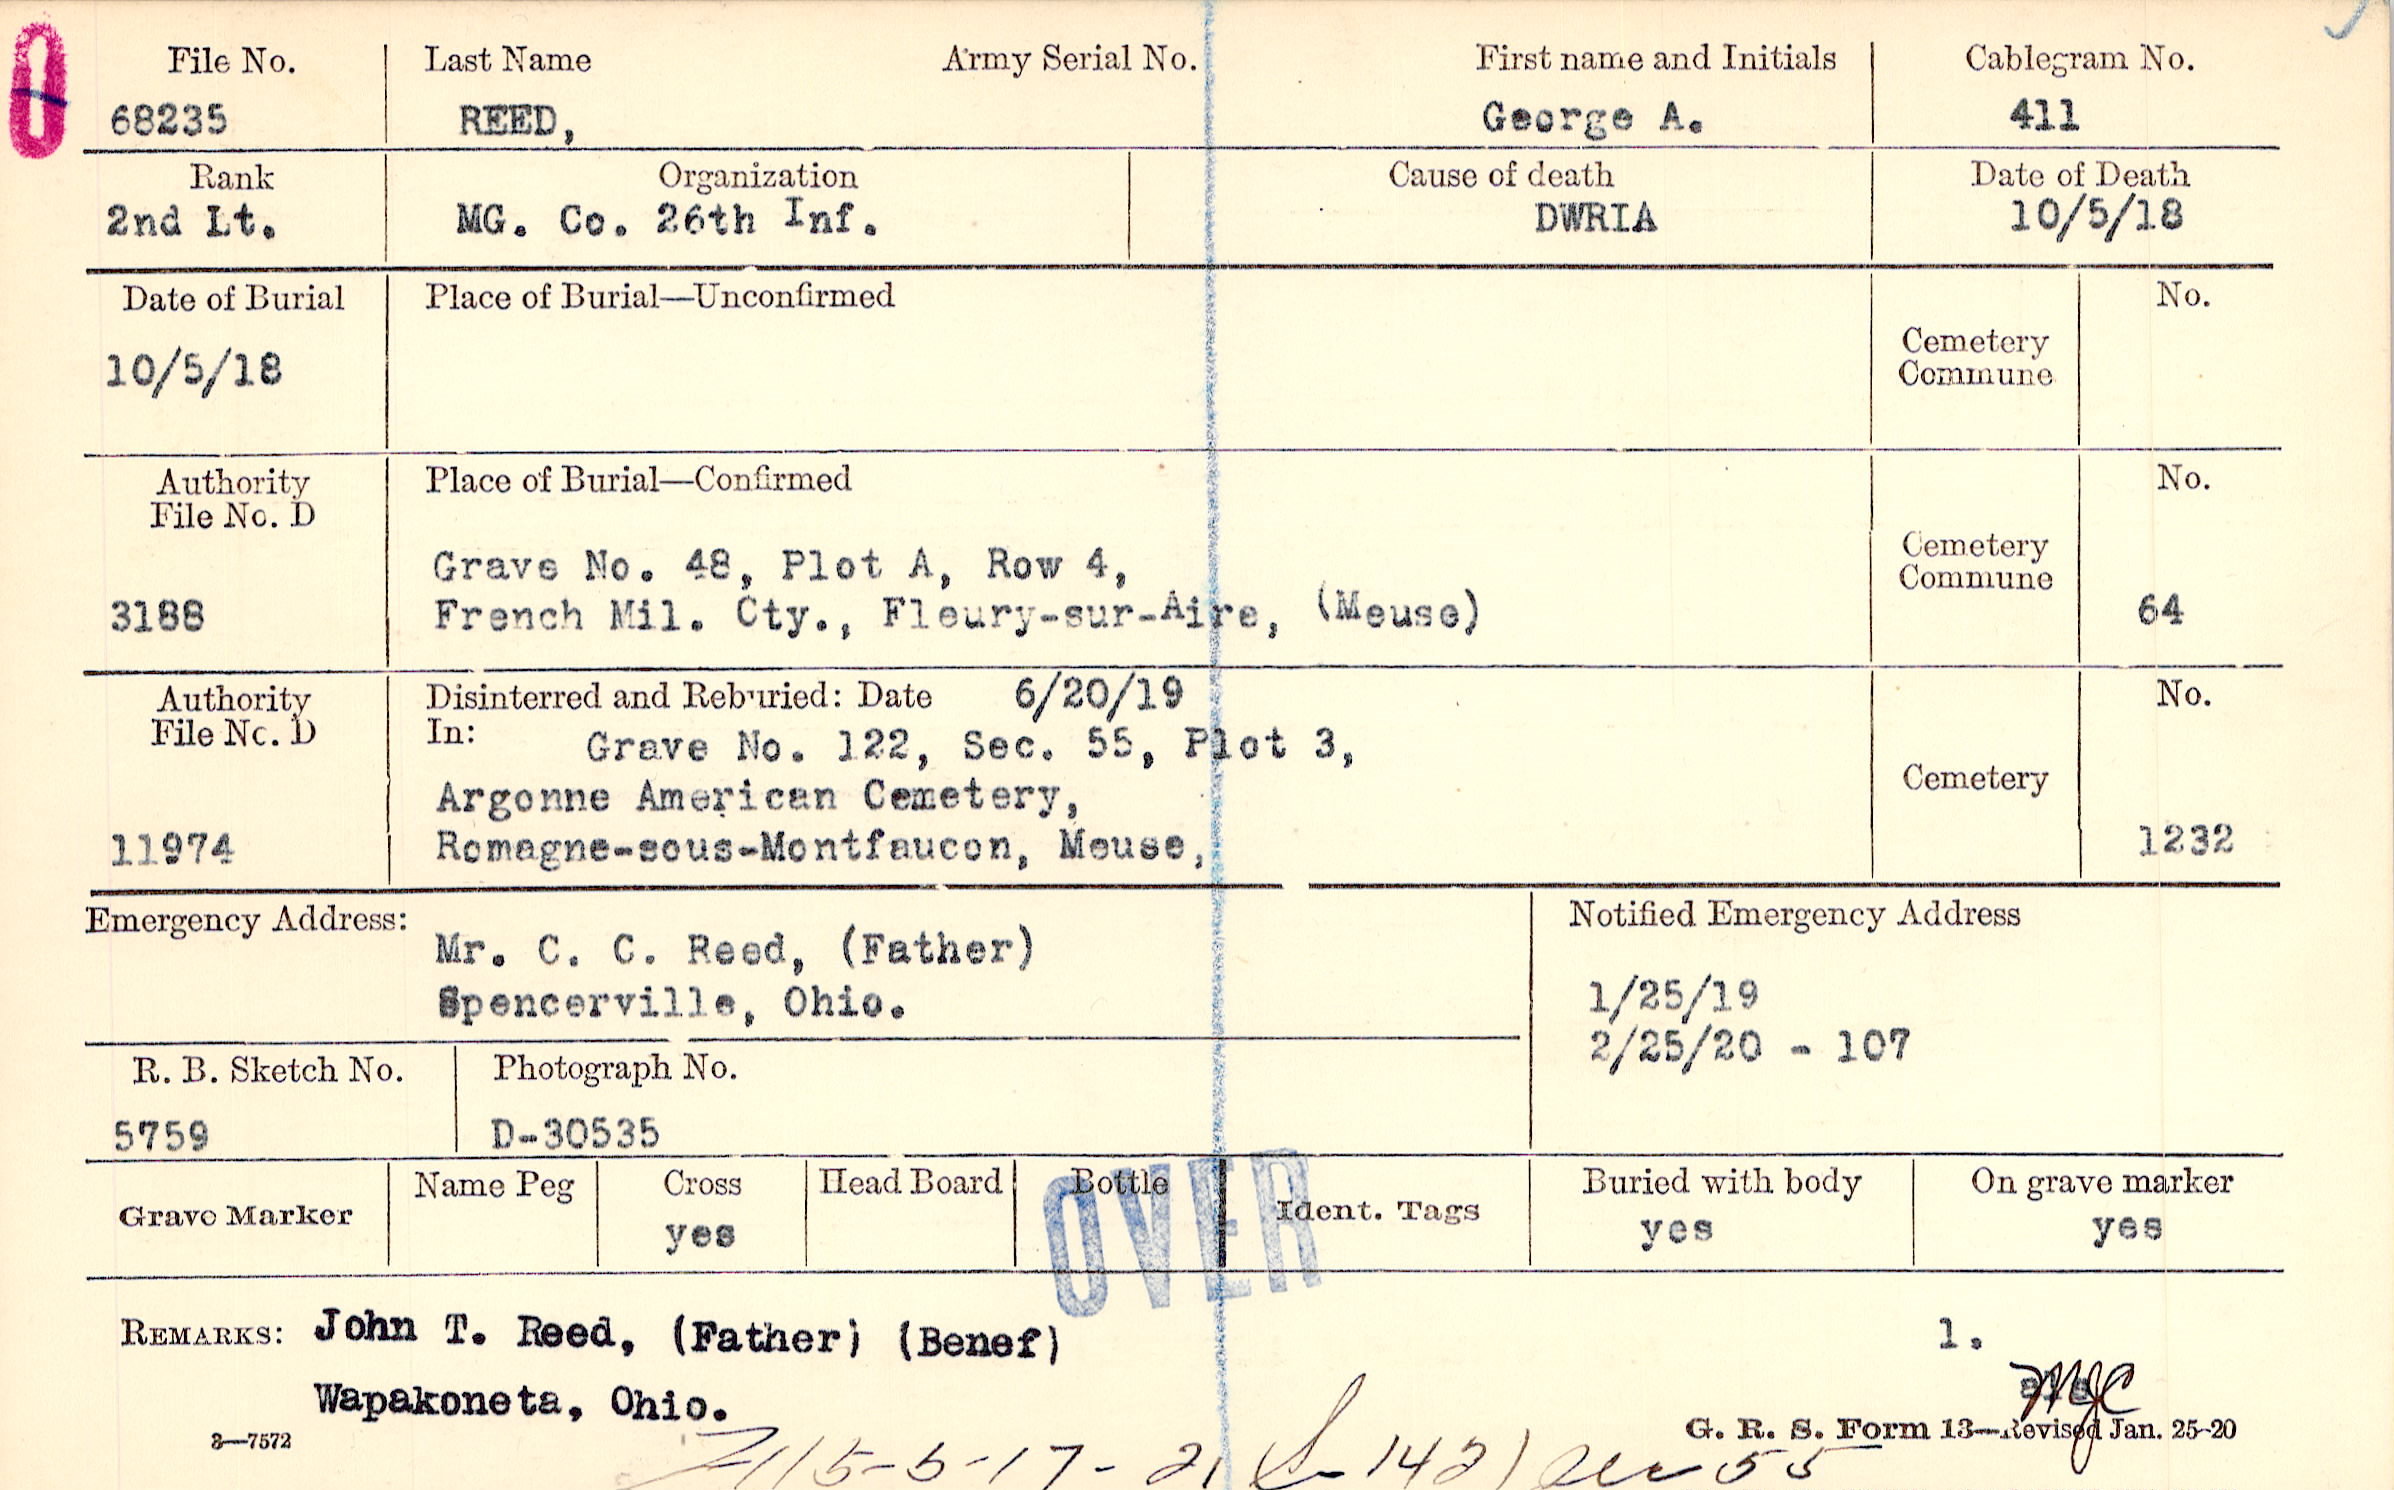 File No. Last Name Army Serial No. First name and Initials Cablegram No.
68235 REED, George A. 411
Rank Organization Cause of death Date of Death
2nd Lt. MG. Co. 26th Inf. DWRIA 10/5/18
Date of Burial Place of Burial—Unconfirmed No.
Cemetery
Commune
10/5/18
Authority Place of Burial—Confirmed No.
File No. D
Cemetery
Commune
Grave No. 48, Plot A, Row 4,
3188 French Mil. Cty., Fleury-sur-Aire, (Meuse) 64
Authority Disinterred and Reburied: Date 6/20/19 No.
File No. D In: Grave No. 122, Sec. 55, Plot 3,
Argonne American Cemetery, Cemetery
11974 Romagne-sous-Montfaucon, Meuse, 1232
Emergency Address: Notified Emergency Address
Mr. C. C. Reed, (Father)
Spencerville, Ohio. 1/25/19
2/25/20 - 107
R. B. Sketch No. Photograph No.
5759 D-30535
Grave Marker Name Peg Cross Head Board Bottle Ident. Tags Buried with body On grave marker
yes yes yes
OVER
REMARKS: John T. Reed, (Father) (Benef) 1.
Wapakoneta, Ohio.
MJC
3—7572 G. R. S. Form 13—Revised Jan. 25-20
5-5-17-21 142 55